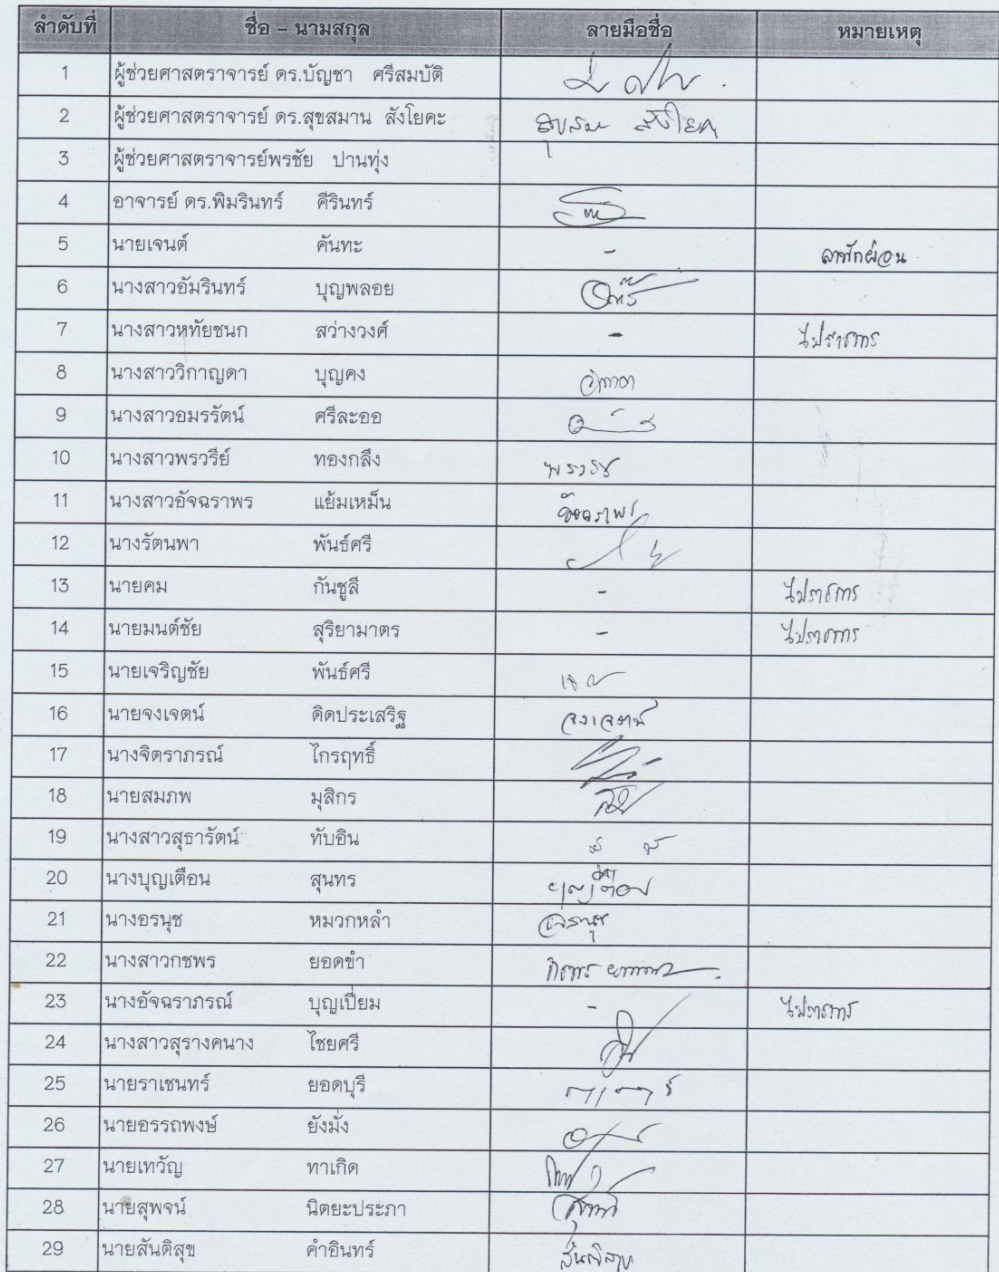 ลำดับที่ ชื่อ – นามสกุล ลายมือชื่อ หมายเหตุ
1 ผู้ช่วยศาสตราจารย์ ดร.บัญชา ศรีสมบัติ
2 ผู้ช่วยศาสตราจารย์ ดร.สุขสมาน สังโยคะ สุขสมาน สังโยคะ
3 ผู้ช่วยศาสตราจารย์พรชัย ปานทุ่ง
4 อาจารย์ ดร.พิมรินทร์ คีรินทร์
5 นายเจนต์ คันทะ - ลาพักผ่อน
6 นางสาวอัมรินทร์ บุญพลอย
7 นางสาวหทัยชนก สว่างวงศ์ - ไปราชการ
8 นางสาววิกาญดา บุญคง
9 นางสาวอมรรัตน์ ศรีละออ
10 นางสาวพรวรีย์ ทองกลึง
11 นางสาวอัจฉราพร แย้มเหม็น อัจฉราพร
12 นางรัตนพา พันธ์ศรี
13 นายคม กันชูลี - ไปราชการ
14 นายมนต์ชัย สุริยามาตร - ไปราชการ
15 นายเจริญชัย พันธ์ศรี
16 นายจงเจตน์ ดิดประเสริฐ จงเจตน์
17 นางจิตราภรณ์ ไกรฤทธิ์
18 นายสมภพ มุสิกร
19 นางสาวสุธารัตน์ ทับอิน
20 นางบุญเตือน สุนทร บุญเตือน
21 นางอรนุช หมวกหลำ อรนุช
22 นางสาวกชพร ยอดขำ
23 นางอัจฉราภรณ์ บุญเปี่ยม - ไปราชการ
24 นางสาวสุรางคนาง ไชยศรี
25 นายราเชนทร์ ยอดบุรี
26 นายอรรถพงษ์ ยังมั่ง
27 นายเทวัญ ทาเกิด
28 นายสุพจน์ นิตยะประภา
29 นายสันติสุข คำอินทร์ สันติสุข